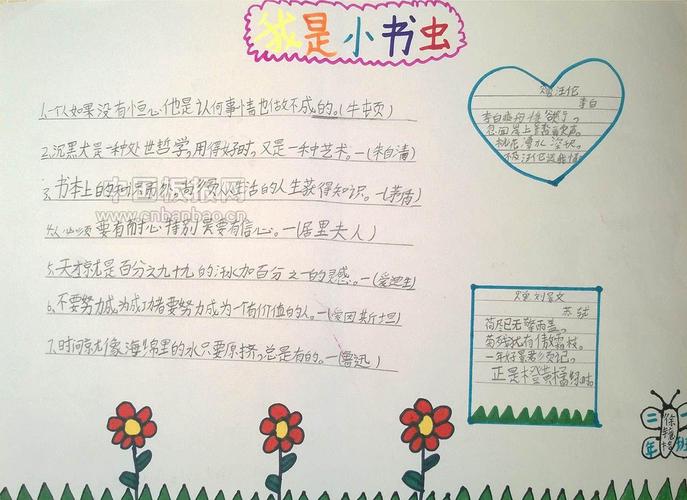 我是小书虫
1.一个人如果没有恒心,他是认何事情也做不成的。(牛顿)
2.沉黑犬是一种处世哲学,用得好时,又是一种艺术。—(朱自清)
3.书本上的知识而外,尚须从生活的人生获得知识。(茅盾)
要有耐心,特别是要有信心。—(居里夫人)
5.天才就是百分之九十九的汗水加百分之一的灵感。—(爱迪生)
6.不要努力成为成功者要努力成为一个有价值的人。(爱因斯坦)
7.时间就像海绵里的水只要原挤,总是有的。—(鲁迅)
中国板报网
www.cnbanbao.cn
赠汪伦
李白
李白
忽闻岸上
桃花潭水深
不及汪伦送我情
赠刘景文
苏轼
荷尽已无擎雨盖。
菊残犹有傲霜枝。
一年好景君须记。
正是橙黄橘绿时。
二年
班